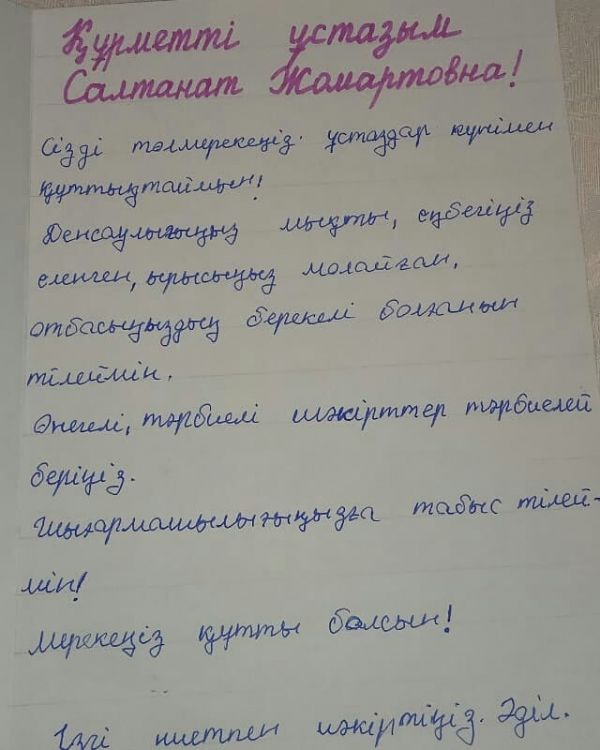 Құрметті ұстазым
Салтанат Жомартовна!
Сізді төлмерекеңіз. ұстаздар күнімен
құттықтаймын!
Денсаулығыңыз мықты, еңбегіңіз
еленген, ырысыңыз молайған,
отбасыңыздың берекелі болғанын
тілеймін.
Өнегелі, тәрбиелі шәкірттер тәрбиелей
беріңіз.
Шығармашылығыңызға табыс тілей-
мін!
Мерекеңіз құтты болсын!
Ізгі ниетпен шәкіртіңіз. Әділ.